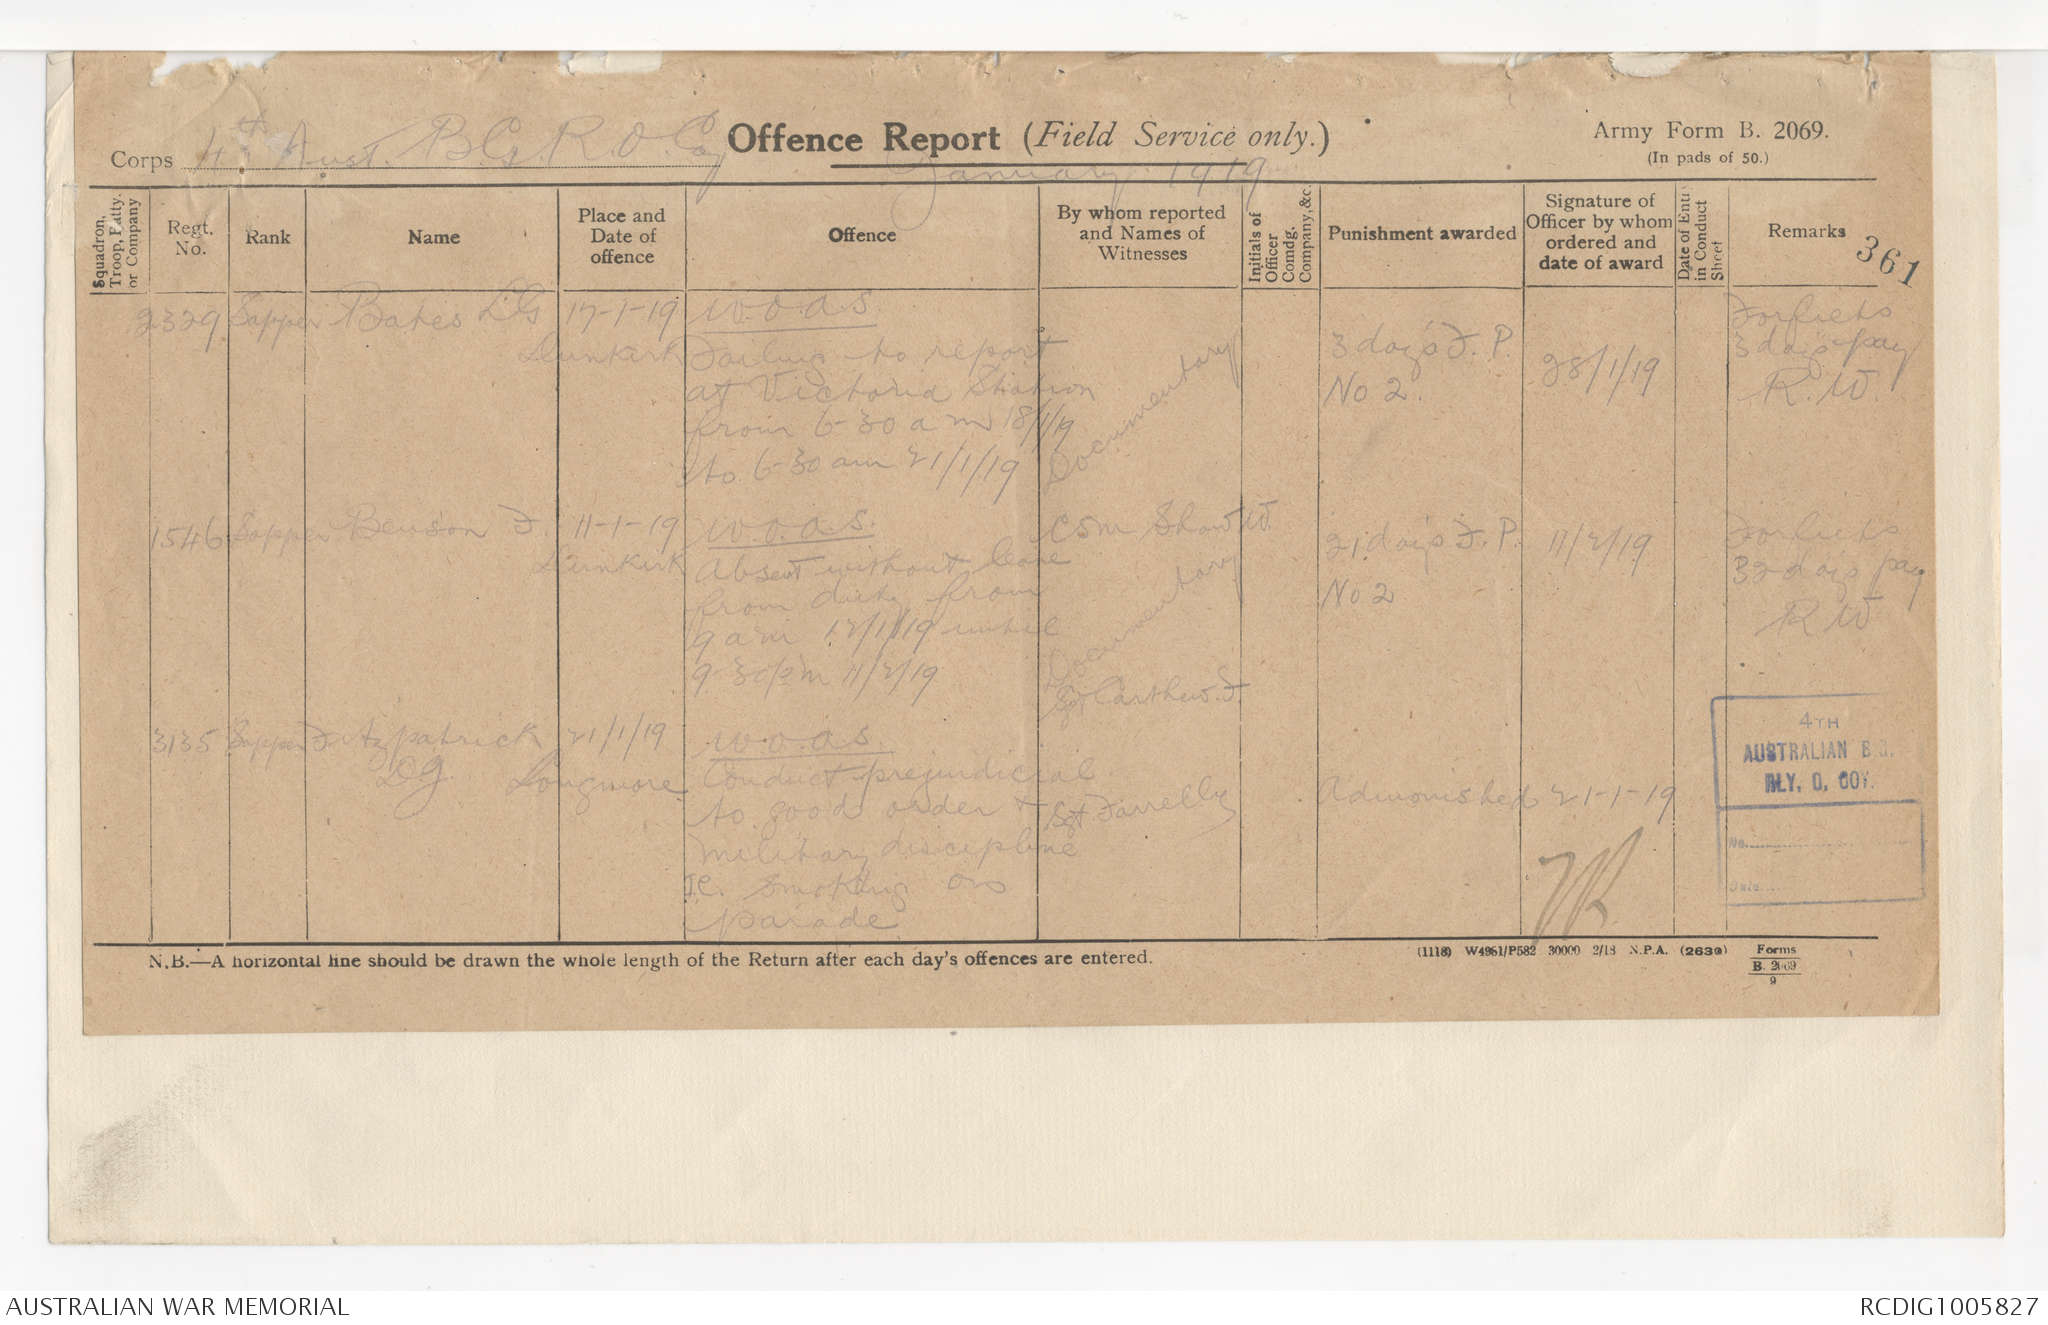 Corps 4th Aust. B.G. R.O. Coy Offence Report (Field Service only.) Army Form B. 2069.
(In pads of 50.)
January 1919
Squadron, Troop, Batty. or Company
Regt. No.
Rank
Name
Place and Date of offence
Offence
By whom reported and Names of Witnesses
Initials of Officer Comdg. Company, &c.
Punishment awarded
Signature of Officer by whom ordered and date of award
Date of Entry in Conduct Sheet
Remarks
361
2329 Sapper Bates L.G. 17-1-19 W.O.A.S.
Dunkirk Failing to report
at Victoria Station
from 6-30 a m 18/1/19
to 6-30 am 21/1/19
Documentary
3 days F. P.
No 2.
28/1/19
Forfeits
3 days pay
R.W.
1546 Sapper Benson F. 11-1-19 W.O.A.S.
Dunkirk Absent without leave
from duty from
9 am 12/1/19 until
9-30 pm 11/2/19
CSM Shaw W.
Documentary
Sgt Carthew. F.
21 days F. P.
No 2
11/2/19
Forfeits
32 days pay
R W
3135 Sapper Fitzpatrick 21/1/19 W.O.A.S.
D.J. Longmore Conduct prejudicial
to good order +
military discipline
I.E. smoking on
parade
Sgt Farrelly
Admonished 21-1-19
4TH
AUSTRALIAN B.G.
RLY. O. COY.
No.
Date
N.B.—A horizontal line should be drawn the whole length of the Return after each day's offences are entered.
(1118) W4961/P582 30000 2/18 N.P.A. (2630) Forms
B. 2069
9
AUSTRALIAN WAR MEMORIAL RCDIG1005827